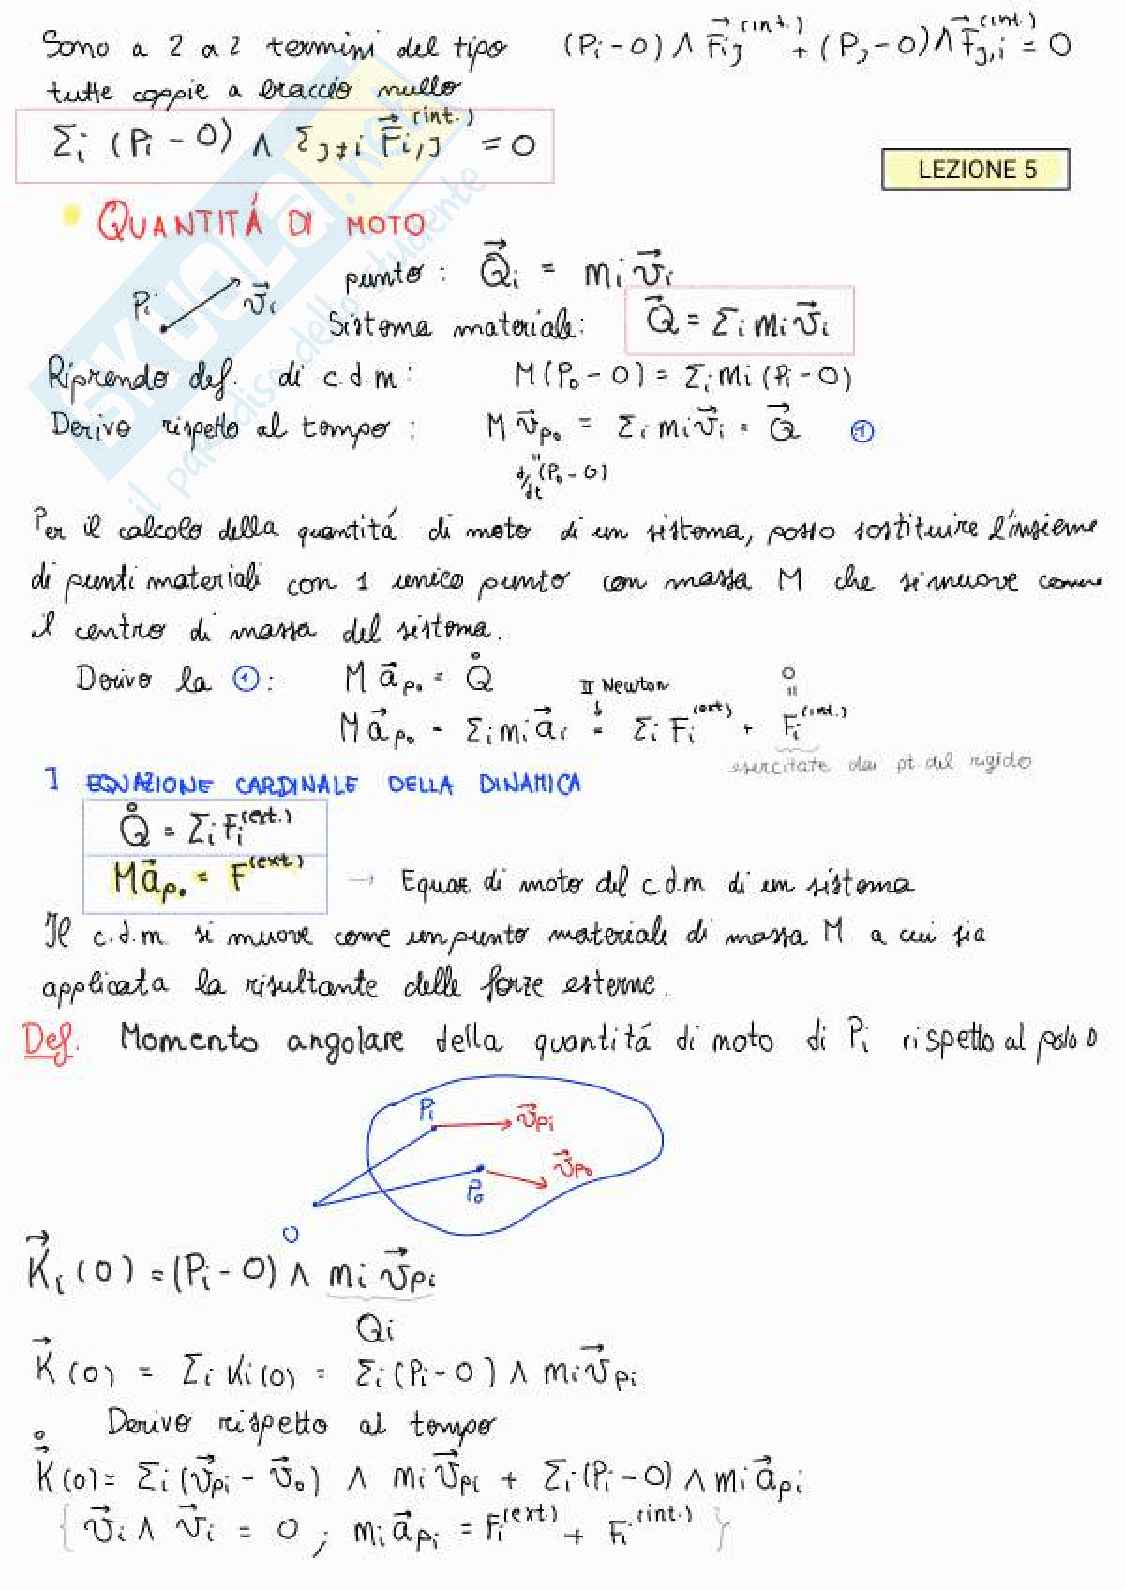 Sono a 2 a 2 termini del tipo (Pi-O) ∧ F⃗ij^(int.) + (Pj-O) ∧ F⃗j,i^(int.) = 0
tutte coppie a braccio nullo
Σi (Pi - O) ∧ Σj≠i F⃗i,j^(int.) = 0
LEZIONE 5
• QUANTITÁ DI MOTO
punto: Q⃗i = mi v⃗i
Pi v⃗i
Sistema materiale: Q⃗ = Σi mi v⃗i
Riprendo def. di c.d.m: M(P₀-O) = Σi mi (Pi-O)
Derivo rispetto al tempo: M v⃗p₀ = Σi mi v⃗i = Q⃗ ①
"
d/dt (P₀-O)
Per il calcolo della quantitá di moto di un sistema, posso sostituire l'insieme
di punti materiali con 1 unico punto con massa M che si muove come
il centro di massa del sistema.
Derivo la ①: M a⃗p₀ = Q̊ II Newton 0
↓ "
M a⃗p₀ = Σi mi a⃗i = Σi Fi^(ext) + Fi^(int.)
esercitate dai pt. del rigido
I EQUAZIONE CARDINALE DELLA DINAMICA
Q̊ = Σi Fi^(ext.)
M a⃗p₀ = F^(ext) → Equaz di moto del c.d.m di un sistema
Il c.d.m. si muove come un punto materiale di massa M a cui sia
applicata la risultante delle forze esterne.
Def. Momento angolare della quantitá di moto di Pi rispetto al polo O
Pi v⃗pi
v⃗p₀
P₀
O
K⃗i(O) = (Pi-O) ∧ mi v⃗pi
Qi
K⃗(O) = Σi Ki(O) = Σi (Pi-O) ∧ mi v⃗pi
Derivo rispetto al tempo
K⃗̊(O) = Σi (v⃗pi - v⃗₀) ∧ mi v⃗pi + Σi (Pi-O) ∧ mi a⃗pi
{ v⃗i ∧ v⃗i = 0 ; mi a⃗pi = Fi^(ext) + Fi^(int.) }
SKUOLA.net
il paradiso dello studente